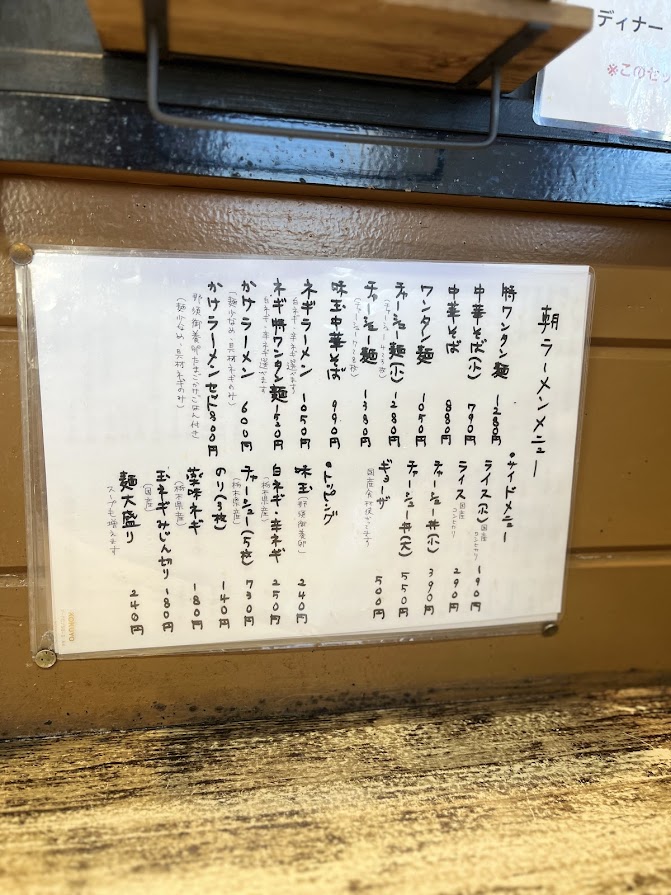 ディナー
※このセッ
朝ラーメンメニュー
特ワンタン麺 1280円
中華そば(小) 790円
中華そば 880円
ワンタン麺 1050円
チャーシュー麺(小) 1280円
チャーシュー麺 1380円
味玉中華そば 990円
ネギラーメン 1050円
白ネギ・辛ネギ選べます
ネギ特ワンタン麺 1520円
白ネギ・辛ネギ選べます
かけラーメン 600円
(麺少なめ・具材ネギのみ)
かけラーメンセット 800円
那須御養卵たまごかけごはん付き
(麺少なめ・具材ネギのみ)
・サイドメニュー
ライス(小) 国産コシヒカリ 190円
ライス 国産コシヒカリ 290円
チャーシュー丼(小) 390円
チャーシュー丼(大) 550円
ギョーザ 500円
・トッピング
味玉(那須御養卵) 240円
白ネギ・辛ネギ 250円
(栃木県産)
チャーシュー(5枚) 730円
(栃木県産)
のり(3枚) 140円
薬味ネギ 180円
(栃木県産)
玉ネギみじん切り 180円
(国産)
麺大盛り 240円
スープも増えます
KOKUYO